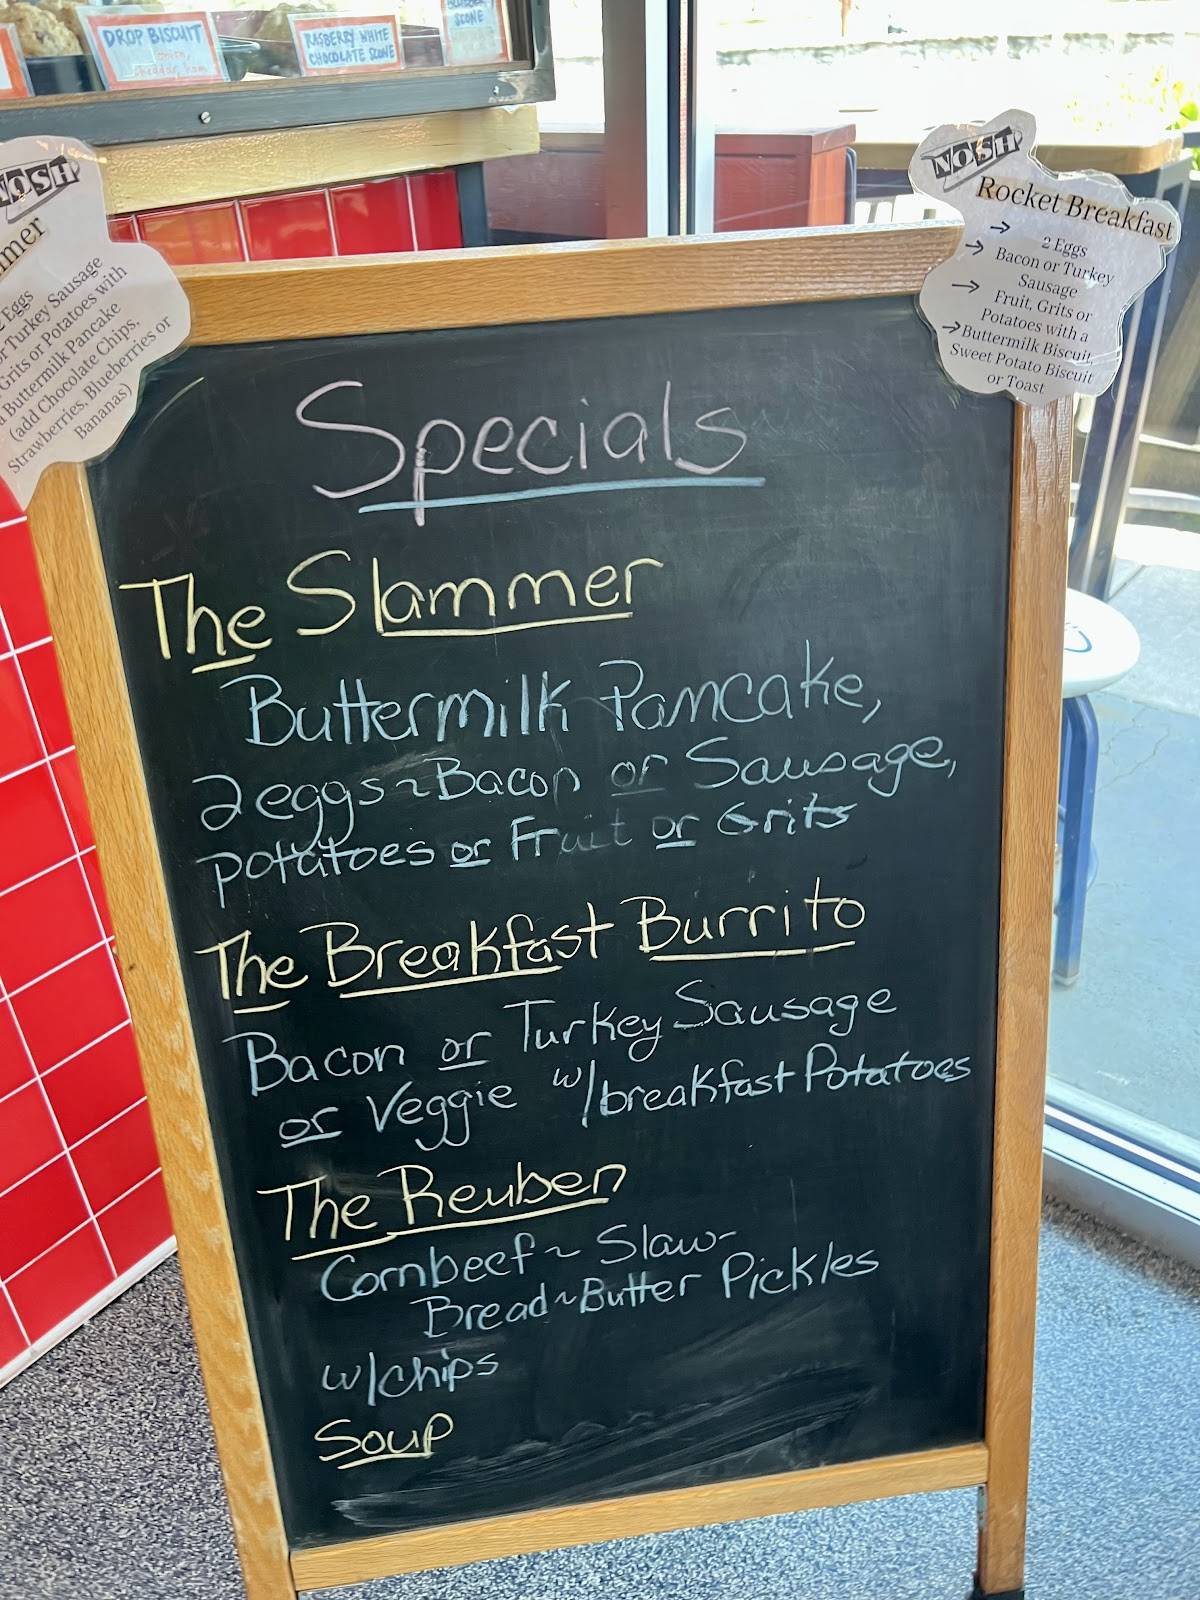 DROP BISCUIT
cheddar, ham
RASBERRY WHITE
CHOCOLATE SCONE
SCONE
NOSH
mmer
2 Eggs
or Turkey Sausage
Grits or Potatoes with
a Buttermilk Pancake
(add Chocolate Chips,
Strawberries, Blueberries or
Bananas)
NOSH
Rocket Breakfast
→ 2 Eggs
→ Bacon or Turkey
Sausage
→ Fruit, Grits or
Potatoes with a
→ Buttermilk Biscuit,
Sweet Potato Biscuit
or Toast
Specials
The Slammer
Buttermilk Pancake,
2 eggs ~ Bacon or Sausage,
potatoes or Fruit or Grits
The Breakfast Burrito
Bacon or Turkey Sausage
or Veggie w/breakfast Potatoes
The Reuben
Cornbeef ~ Slaw -
Bread ~ Butter Pickles
w/chips
Soup